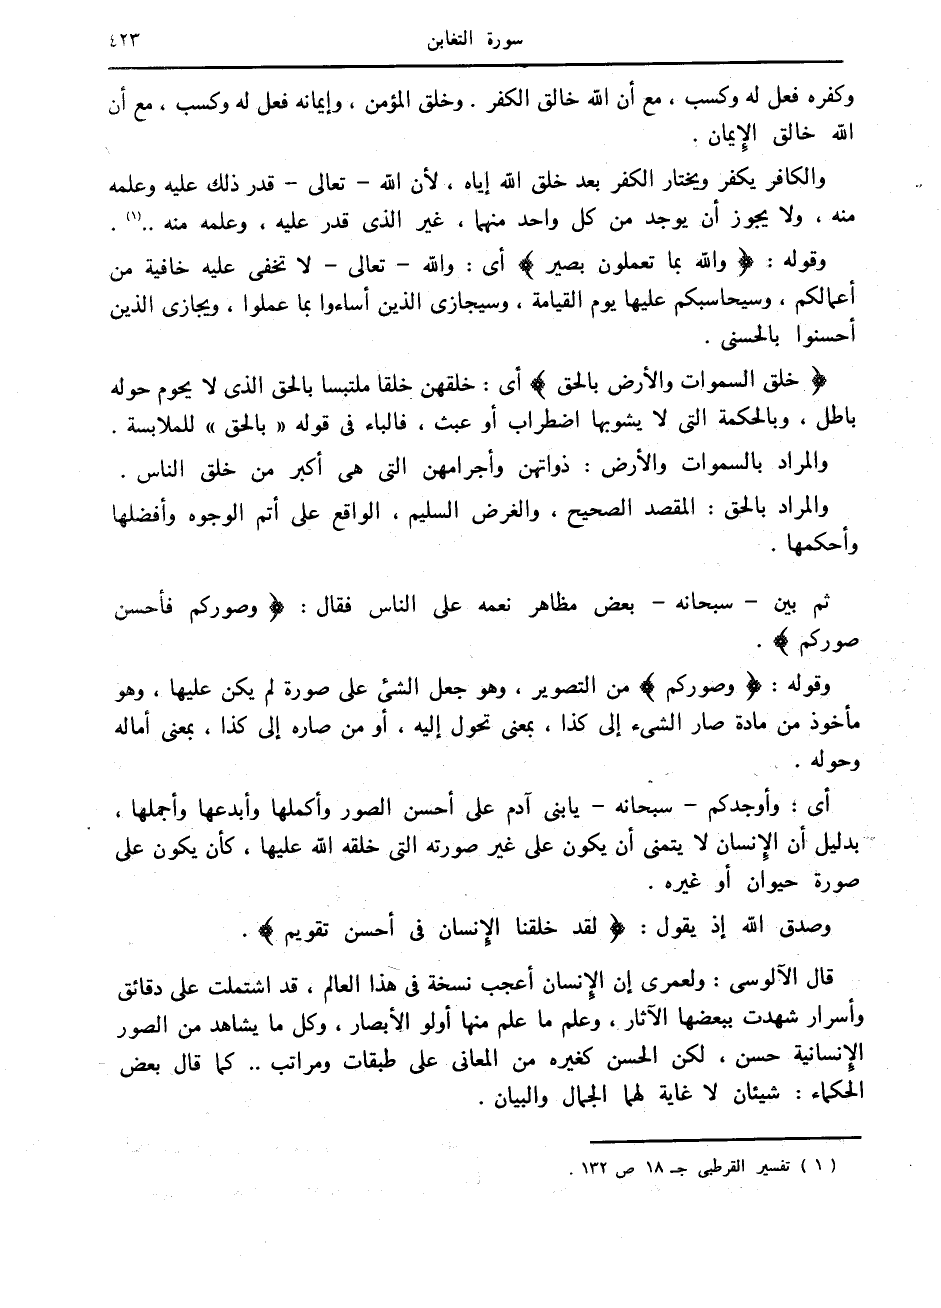 سورة التغابن
٤٢٣
وكفره فعل له وكسب ، مع أن الله خالق الكفر . وخلق المؤمن ، وإيمانه فعل له وكسب ، مع أن
الله خالق الإيمان .
والكافر يكفر ويختار الكفر بعد خلق الله إياه ، لأن الله – تعالى – قدر ذلك عليه وعلمه
منه ، ولا يجوز أن يوجد من كل واحد منهما ، غير الذى قدر عليه ، وعلمه منه ..(١) .
وقوله : ﴿ والله بما تعملون بصير ﴾ أى : والله – تعالى – لا تخفى عليه خافية من
أعمالكم ، وسيحاسبكم عليها يوم القيامة ، وسيجازى الذين أساءوا بما عملوا ، ويجازى الذين
أحسنوا بالحسنى .
﴿ خلق السموات والأرض بالحق ﴾ أى : خلقهن خلقا ملتبسا بالحق الذى لا يحوم حوله
باطل ، وبالحكمة التى لا يشوبها اضطراب أو عبث ، فالباء فى قوله « بالحق » للملابسة .
والمراد بالسموات والأرض : ذواتهن وأجرامهن التى هى أكبر من خلق الناس .
والمراد بالحق : المقصد الصحيح ، والغرض السليم ، الواقع على أتم الوجوه وأفضلها
وأحكمها .
ثم بين – سبحانه – بعض مظاهر نعمه على الناس فقال : ﴿ وصوركم فأحسن
صوركم ﴾ .
وقوله : ﴿ وصوركم ﴾ من التصوير ، وهو جعل الشئ على صورة لم يكن عليها ، وهو
مأخوذ من مادة صار الشىء إلى كذا ، بمعنى تحول إليه ، أو من صاره إلى كذا ، بمعنى أماله
وحوله .
أى : وأوجدكم – سبحانه – يابنى آدم على أحسن الصور وأكملها وأبدعها وأجملها ،
بدليل أن الإنسان لا يتمنى أن يكون على غير صورته التى خلقه الله عليها ، كأن يكون على
صورة حيوان أو غيره .
وصدق الله إذ يقول : ﴿ لقد خلقنا الإنسان فى أحسن تقويم ﴾ .
قال الآلوسى : ولعمرى إن الإنسان أعجب نسخة فى هذا العالم ، قد اشتملت على دقائق
وأسرار شهدت ببعضها الآثار ، وعلم ما علم منها أولو الأبصار ، وكل ما يشاهد من الصور
الإنسانية حسن ، لكن الحسن كغيره من المعانى على طبقات ومراتب .. كما قال بعض
الحكماء : شيئان لا غاية لهما الجمال والبيان .
( ١ ) تفسير القرطبى جـ ١٨ ص ١٣٢ .